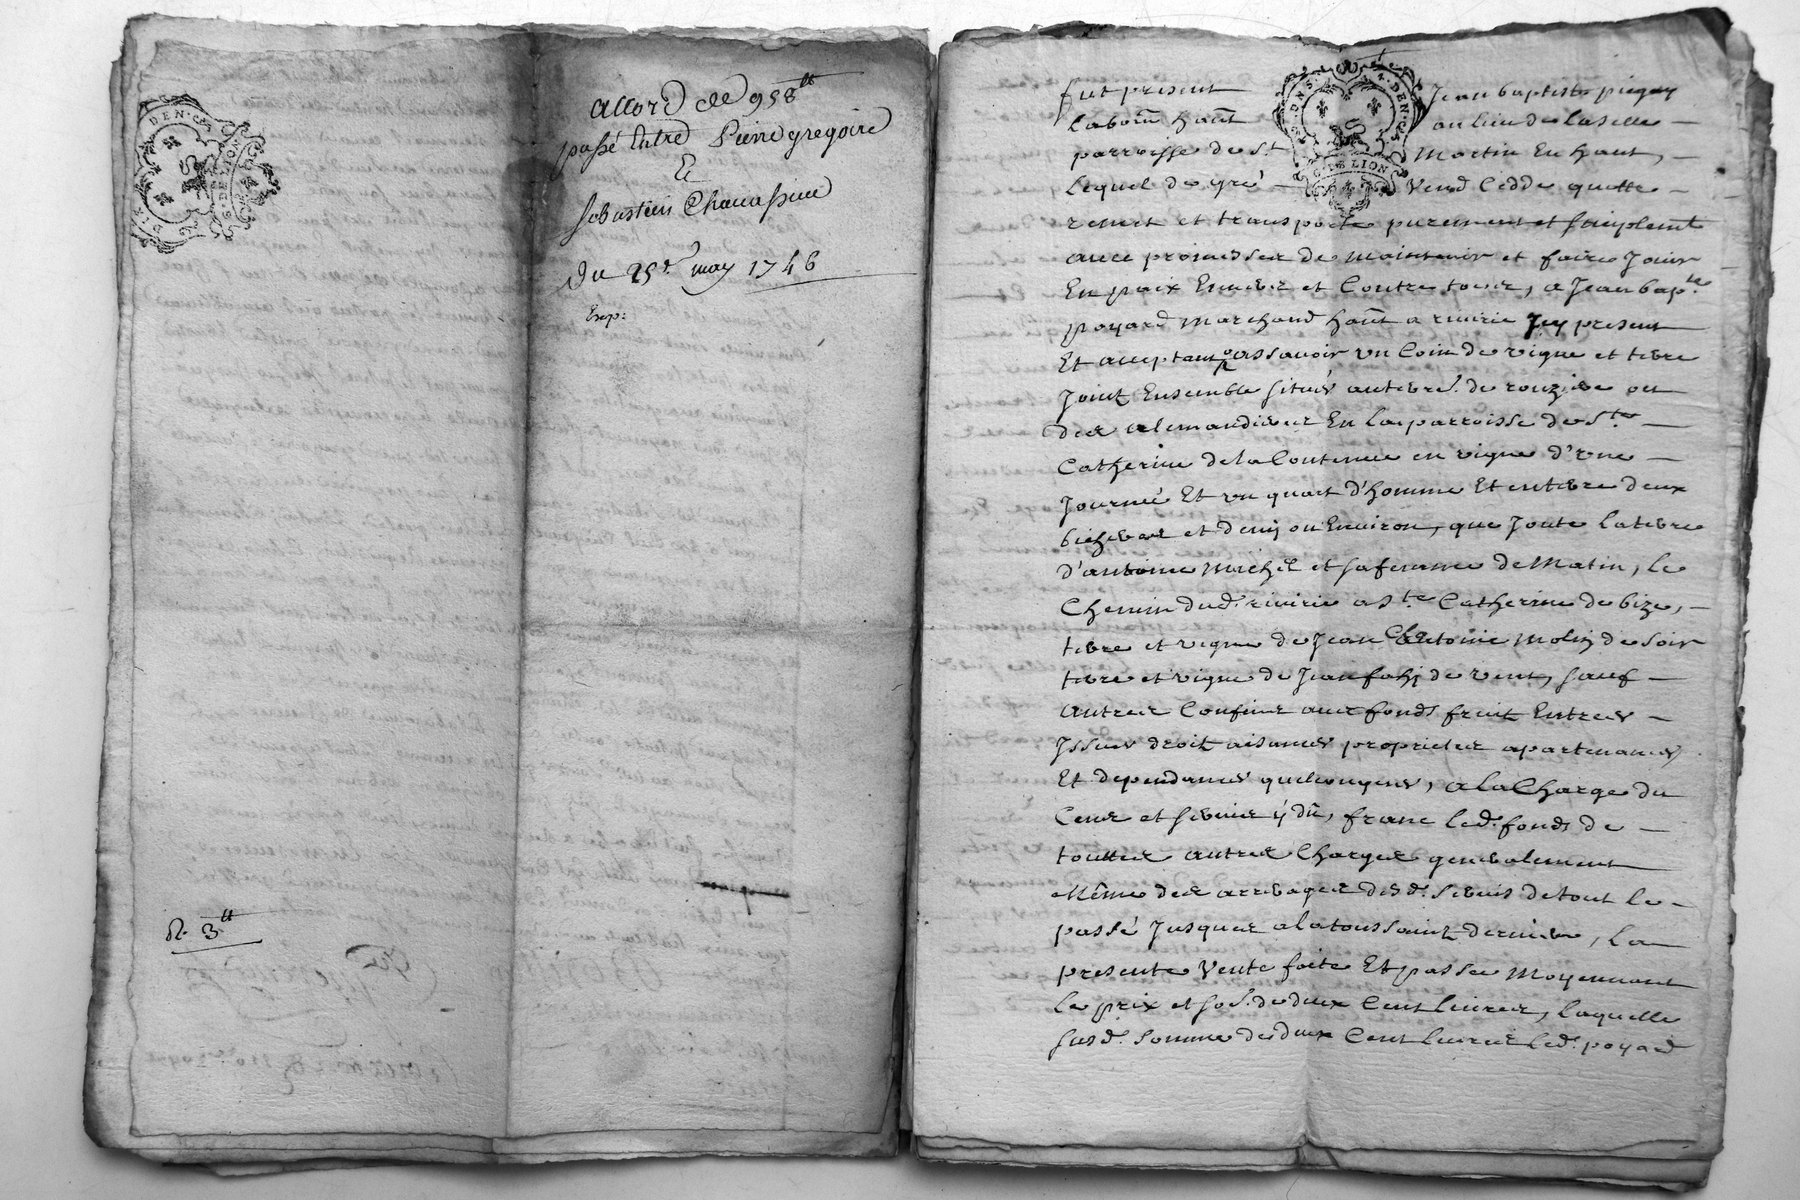 accord de 958ᵗᵗ
passé Entre Pierre gregoire
Et
sebastien Chauassiue
Du 25ᵉ may 1746
Exp:
R. 3ᵗᵗ
fut present Jean baptiste
labor̃ haũt au lieu de laselle
parroisse de sᵗ Martin En haut,
Lequel de gré Vend Cedde quitte
remet et transporte purement et simplemᵗ
auec promesses de maintenir et faire Jouir
En paix Enuers et Contre tous, a Jean bapᵗᵉ
poyard Marchand haũt a riuirie Jcy present
Et acceptant assauoir vn Coin de vigne et terre
Joint Ensemble situés au terreʳ de rouziere ou
des alemandieres En la parroisse de sᵗᵉ
Catherine de la Contenue en vigne d'vne
Journeé Et vn quart d'homme Et en terre deux
bicherees et demy ou Enuiron, que Joute la terre
d'antoine Michel et sa femme de Matin, le
Chemin dud. riuirie a sᵗᵉ Catherine de bize,
terre et vigne de Jean antoine Molin de soir
terre et vigne de Jean de vent, sauf
autres Confins auec fonds fruit Entrées
Jssues droit aisances proprietes apartenances
Et dependances quelconques, a la Charge du
Cens et seruice y dû, franc led. fonds de
touttes autres Charges generalement
Même des arrerages desd. seruis de tout le
passé Jusques a la toussaint derniere, la
presente Vente faite Et passée Moyennant
le prix et soẽ. de deux Cent liures, laquelle
susd. somme de deux Cent liures led. poyard